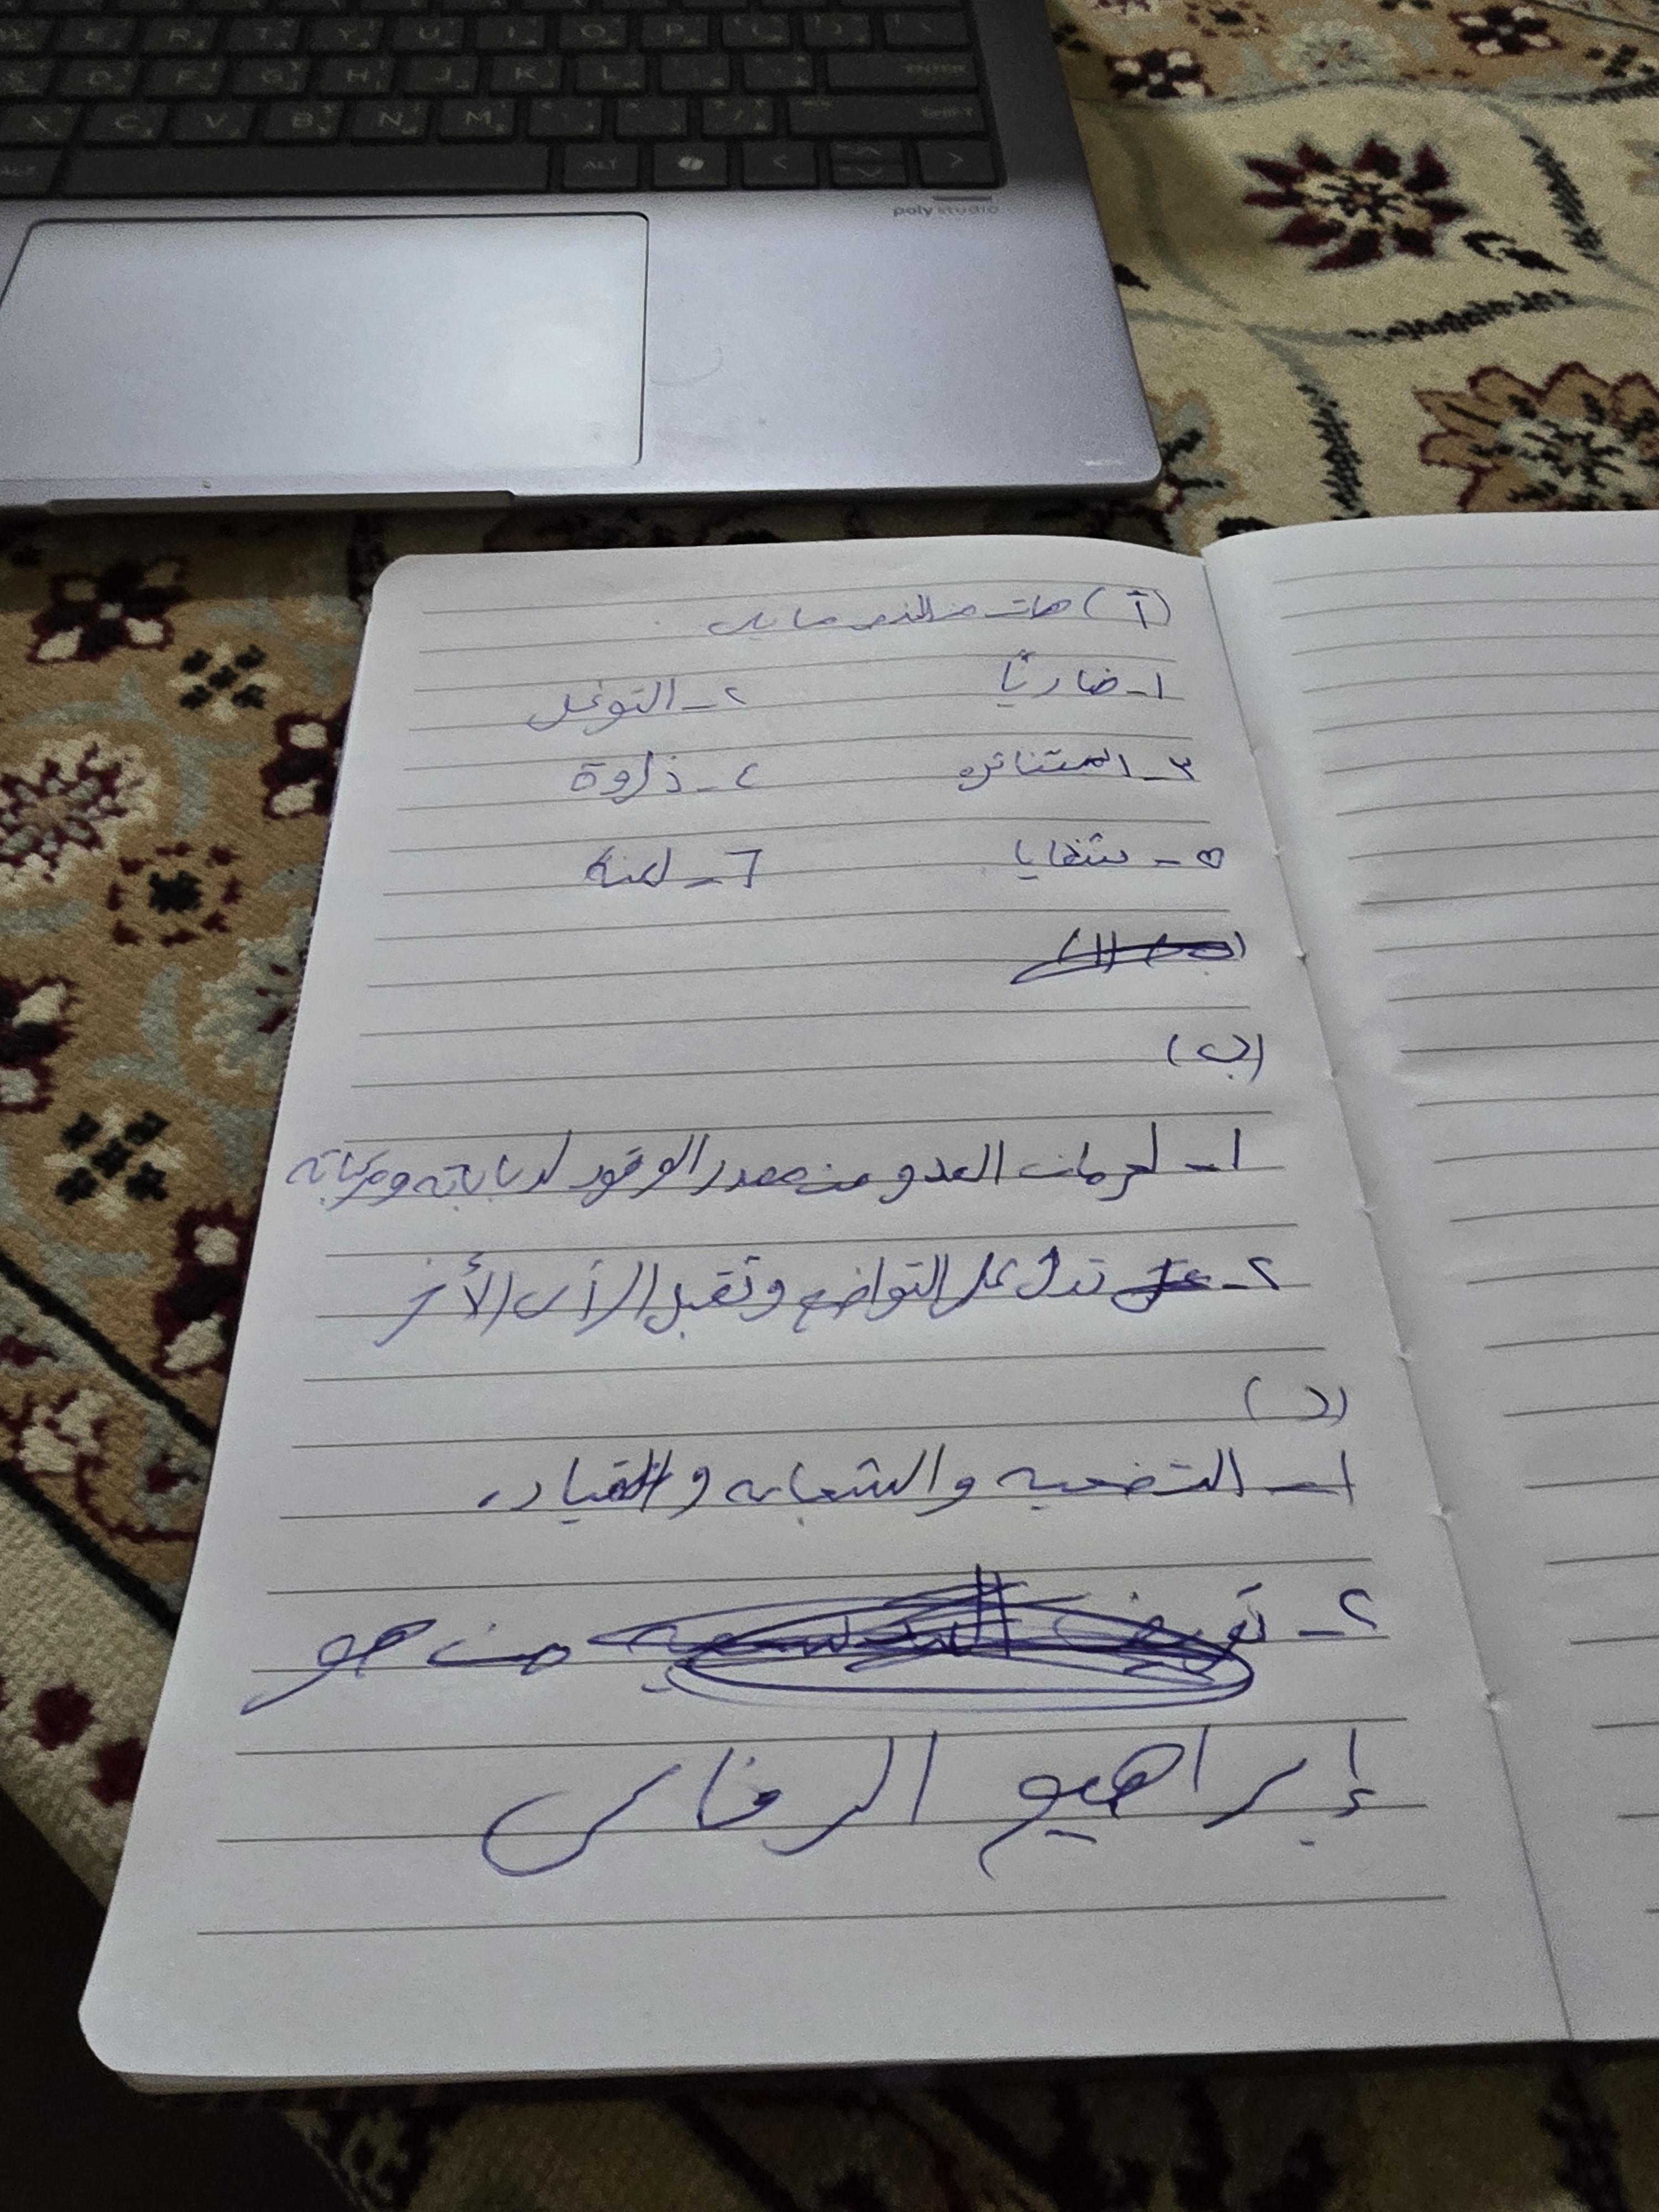 W E R T Y U I O P
S D F G H J K L ENTER
X C V B N M SHIFT
ALT ALT < >
poly studio
(أ) هات من النص ما يلي
١- ضاريًا ٢- التوغل
٣- المتناثره ٤- ذروة
٥- شظايا ٦- لعنة
(ب)
١- لحرمان العدو من مصدر الوقود لدباباته ومركباته
٢- تدل على التواضع وتقبل الرأي الأخر
(د)
١- التضحيه والشجاعه و القياده
٢- من هو
إبراهيم الرفاعي